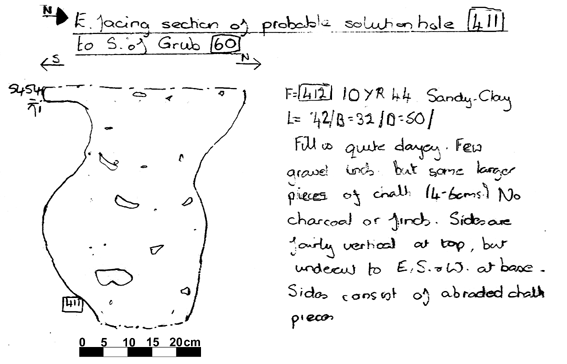 N E. facing section of probable solution hole 411
to S. of Grub 60
S N
5454
F= 412 10 YR 44 Sandy-Clay
L= 42/B=32/D=50/
Fill is quite clayey. Few
gravel incls. but some larger
pieces of chalk (4-6cms.) No
charcoal or flinds. Sides are
fairly vertical at top, but
undercut to E, S. & W. at base.
Sides consist of abraded chalk
pieces
411
0 5 10 15 20cm